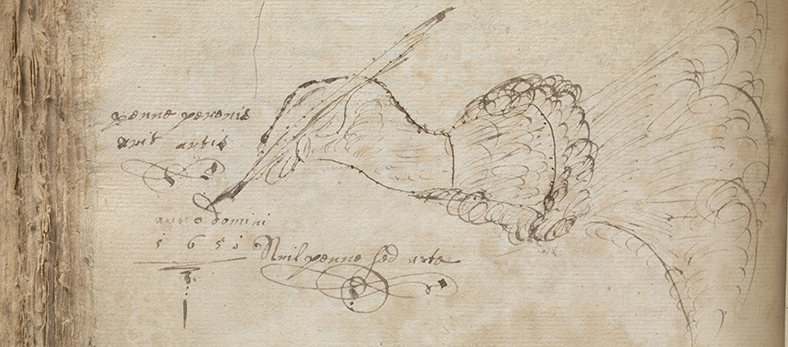 penne perenis
arit artis
anno domini
1 6 5 1
penne sed arte